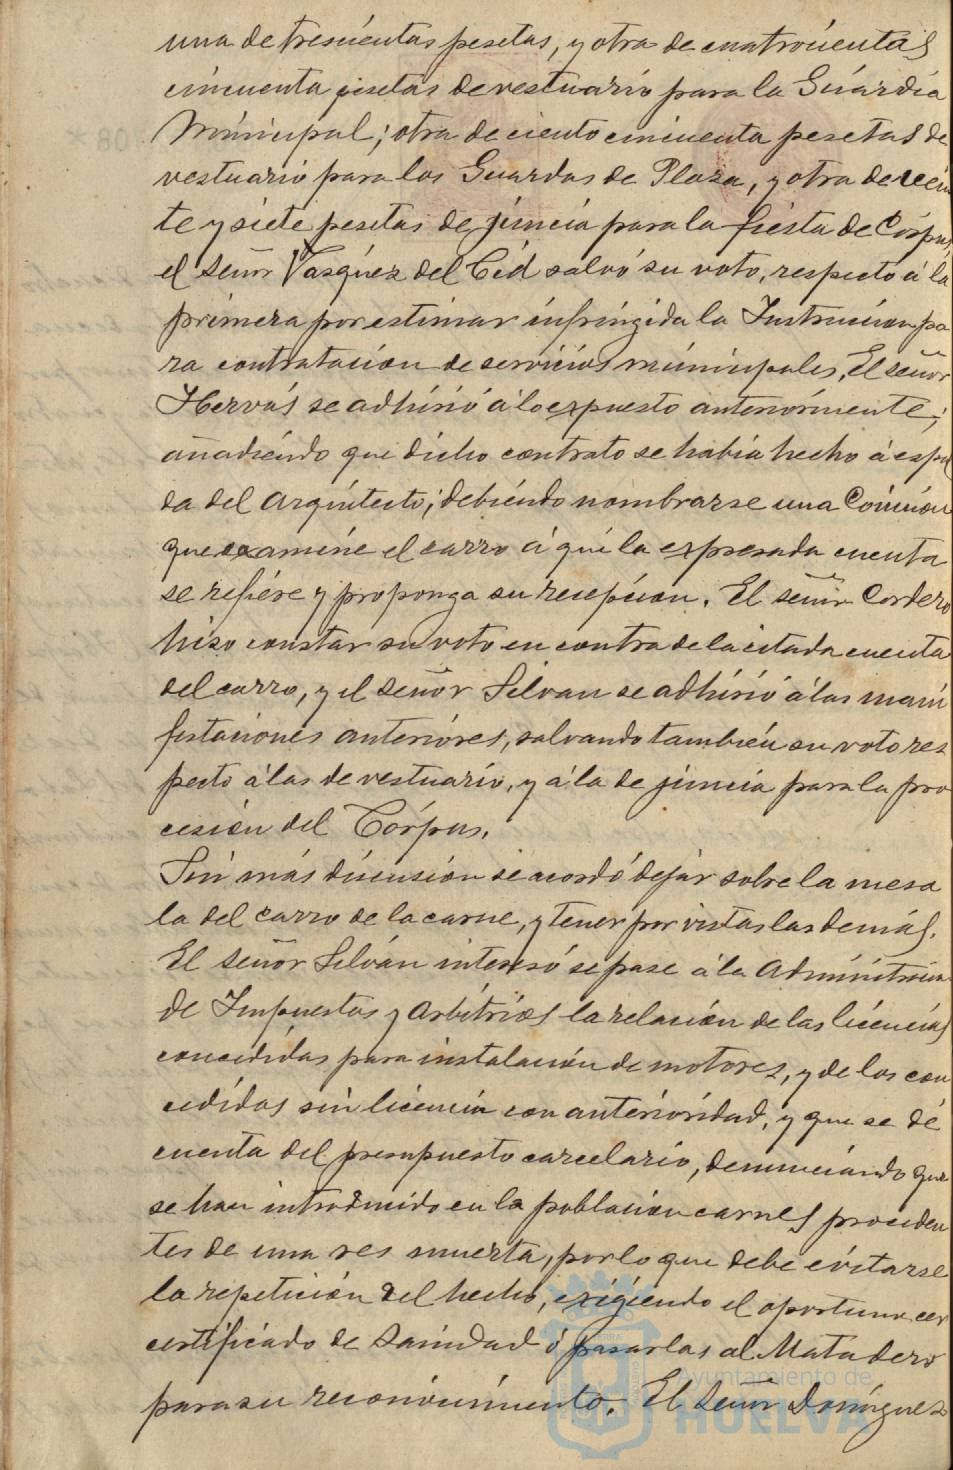 una de trescientas pesetas, y otra de cuatrocientas
cincuenta pesetas de vestuario para la Guardia
Municipal; otra de ciento cincuenta pesetas de
vestuario para los Guardas de Plaza, y otra de vein
te y siete pesetas de juncia para la fiesta de Corpus,
el señor Vasquez del Cid salvó su voto, respecto á la
primera por estimar infringida la Instruccion pa
ra contratacion de servicios municipales. El señor
Hervás se adhirió á lo expuesto anteriormente;
añadiendo que dicho contrato se habia hecho á espal
da del Arquitecto; debiendo nombrarse una Comision
que examine el carro á que la expresada cuenta
se refiere y proponga su recepcion. El señor Cordero
hizo constar su voto en contra de la citada cuenta
del carro, y el señor Silvan se adhirió á las mani
festaciones anteriores, salvando tambien su voto res
pecto á las de vestuario, y á la de juncia para la pro
cesión del Córpus.
Sin más discusión se acordó dejar sobre la mesa
la del carro de la carne, y tener por vistas las demás.
El señor Silván interesó se pase á la Administracion
de Impuestos y Arbitrios la relación de las licencias
concedidas para instalación de motores, y de los con
cedidos sin licencia con anterioridad, y que se dé
cuenta del presupuesto carcelario, denunciando que
se han introducido en la poblacion carnes proceden
tes de una res muerta, por lo que debe evitarse
la repetición del hecho, exigiendo el oportuno cer
certificado de Sanidad ó pasarlas al Matadero
para su reconocimiento. El Señor Domínguez
Ayuntamiento de
HUELVA